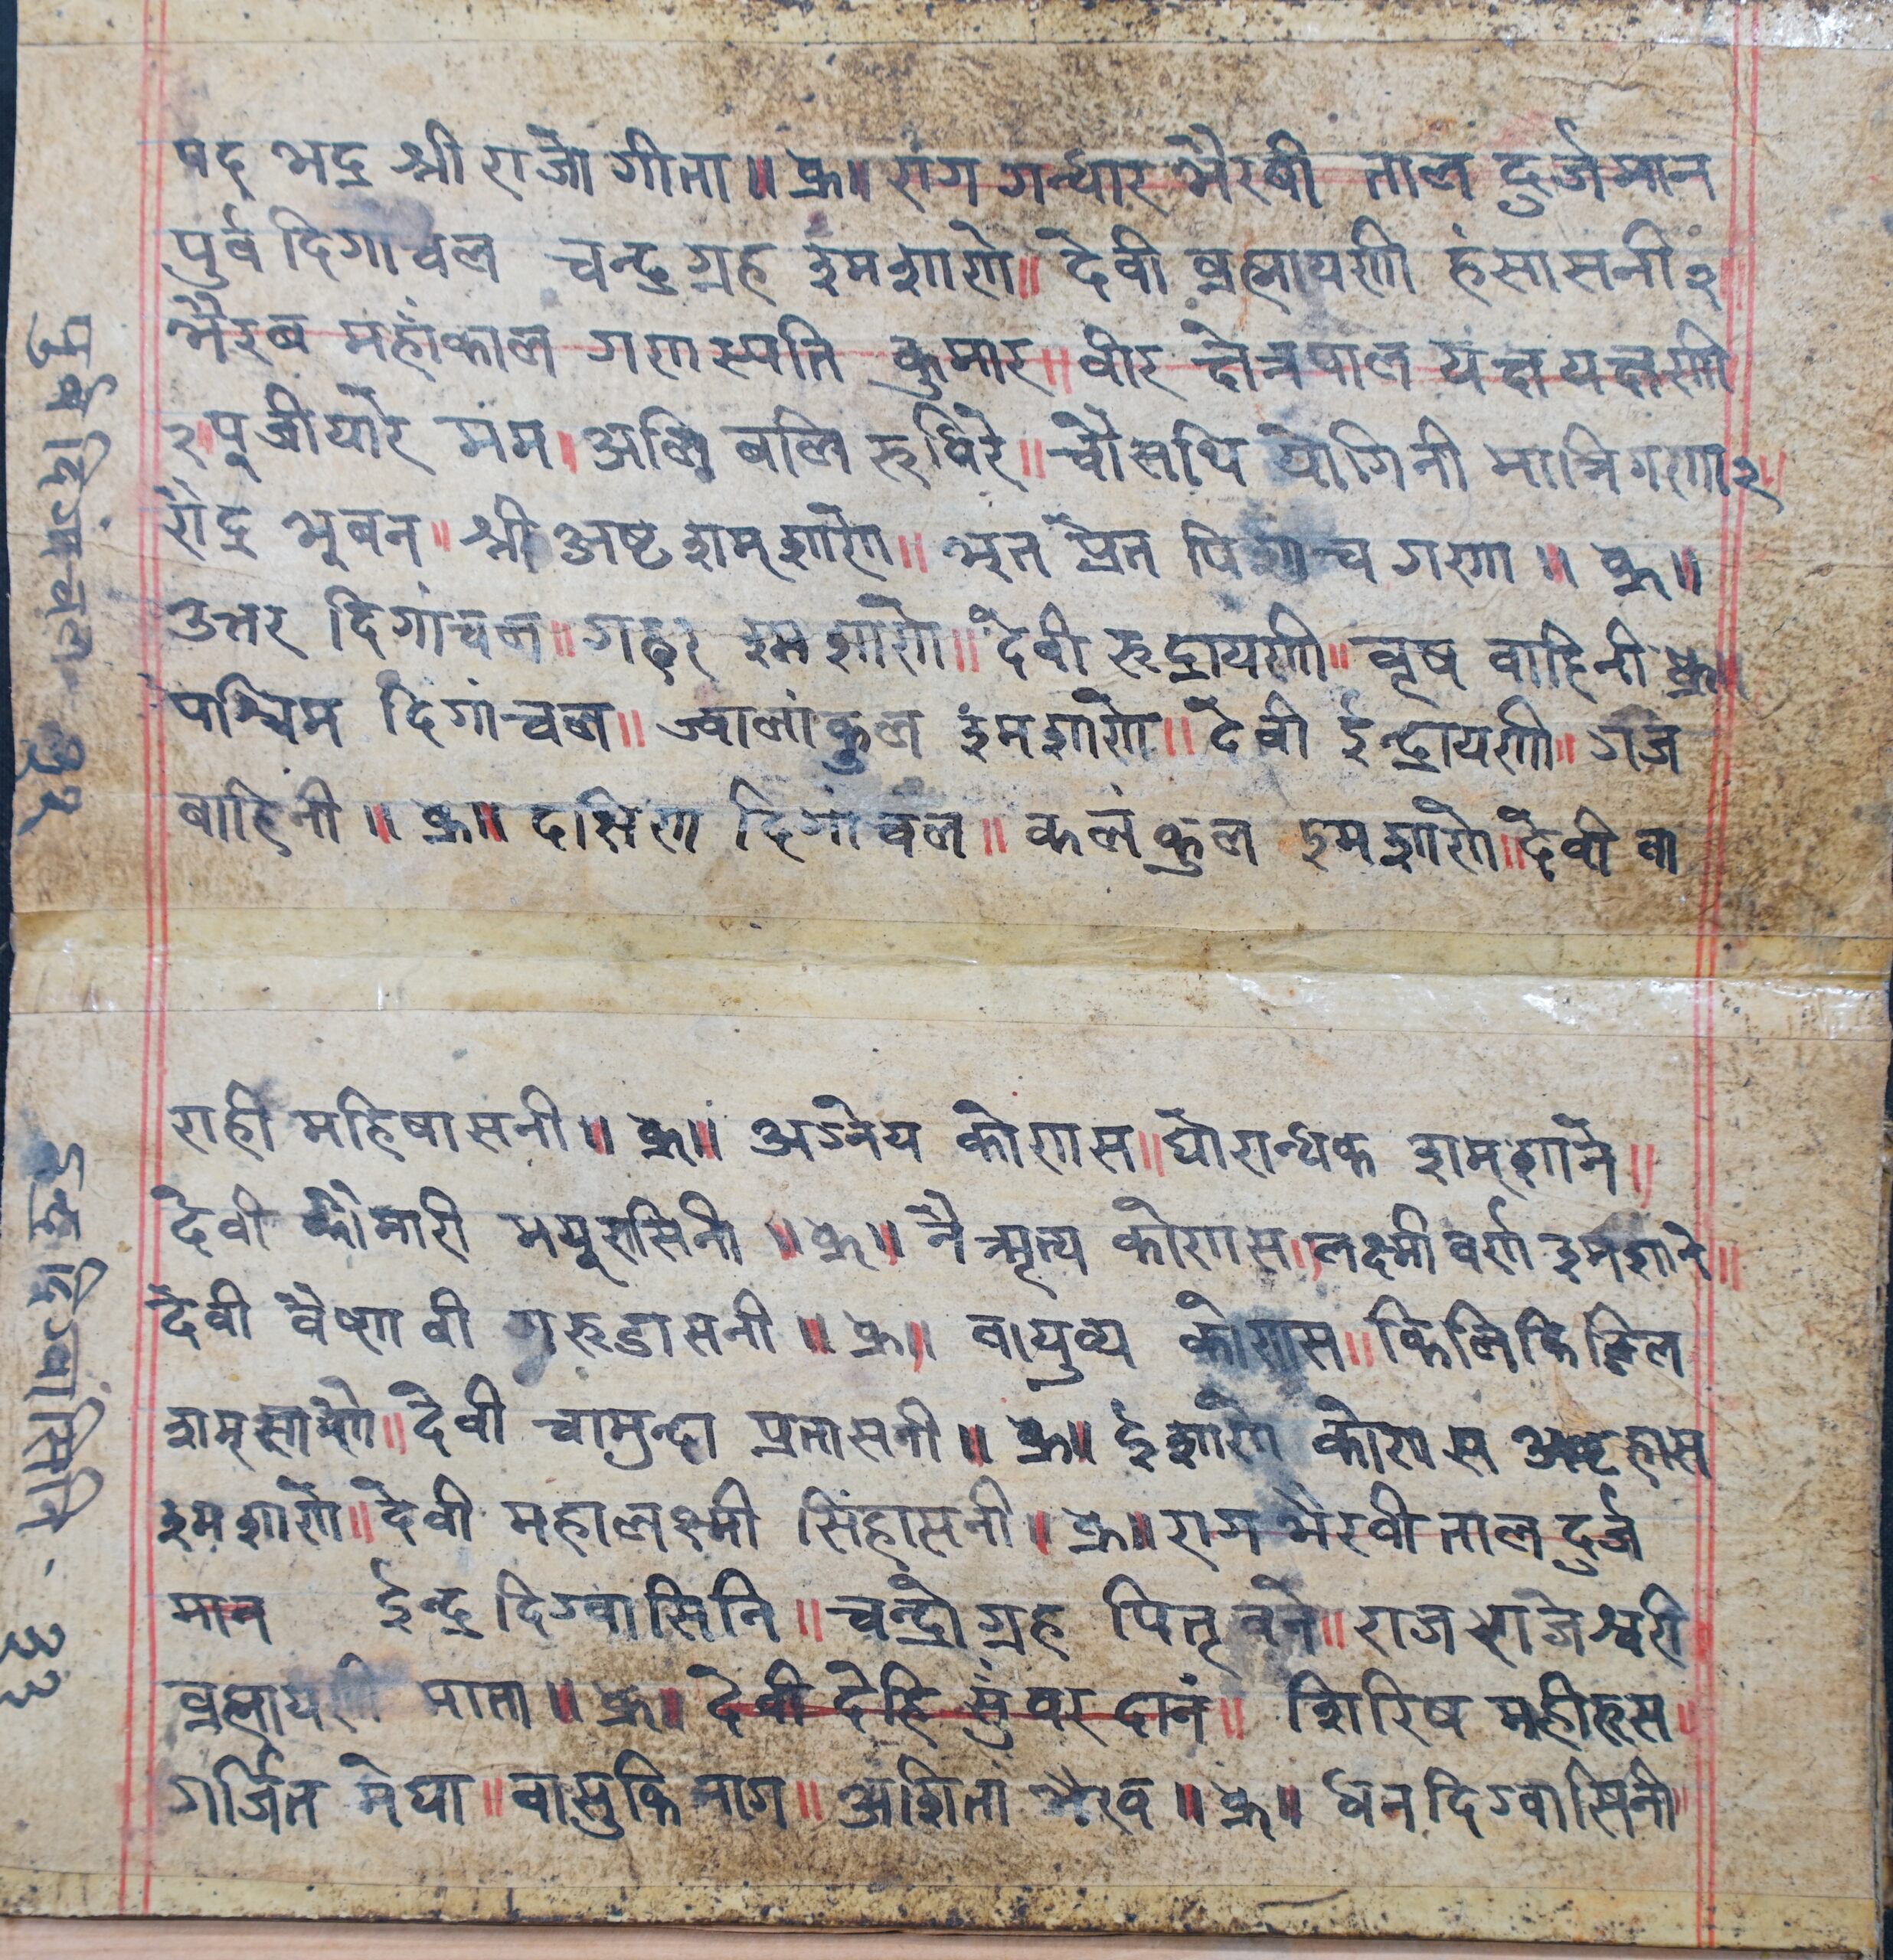 पद भद्र श्री राजो गीता॥ क्र॥ राग गन्धार भैरवी ताल दुर्जमान
पुर्व दिगांचल चन्द्रग्रह इमशाणे॥ देवी ब्रह्मायणी हंसासनी २
भैरब महांकाल गणस्पति कुमार॥ वीर क्षेत्रपाल यक्ष यक्षणी
२ पूजीयारे मम॥ अलि बलि रुधिरे॥ चौसथि योगिनी मात्रिगणा २
रौद्र भूबन॥ श्री अष्ट शम्शाणे॥ भूत प्रेत पिशाच गणा॥ क्र॥
उत्तर दिगांचल॥ गह्वर इमशाणे॥ देवी रुद्रायणी॥ वृष वाहिनी क्र॥
पश्चिम दिगांचल॥ ज्वालांकुल इमशाणे॥ देवी ईन्द्रायणी॥ गज
बाहिनी॥ क्र॥ दक्षिण दिगांचल॥ कलंकुल इमशाणे॥ देवी बा
राही महिषासनी॥ क्र॥ अग्नेय कोणस॥ घोरान्धक शम्शाने॥
देवी कौमारी मयुरासिनी॥ क्र॥ नैऋत्य कोणस॥ लक्ष्मी वर्ण इमशाने॥
देवी वैष्णवी गरुडासनी॥ क्र॥ वायुव्य कोणस॥ किलिकिलिल
शम्साणे॥ देवी चामुन्दा प्रतासनी॥ क्र॥ ईशाणे कोणस अष्टहास
इमशाणे॥ देवी महालक्ष्मी सिंहासनी॥ क्र॥ राग भैरवी ताल दुर्ज
मान ईन्द्र दिग्वासिनि॥ चन्द्रो ग्रह पितृवने॥ राज राजेश्वरी
ब्रह्मायणी माता॥ क्र॥ देवी देहि सुं वर दानं॥ शिरिष महीरुस॥
गर्जित मेघा॥ वासुकि नाग॥ अशितां भैरव॥ क्र॥ धन दिग्वासिनी॥
पुर्व दिगांचल - ३२
ईन्द्र दिग्वांसिनि - ३३